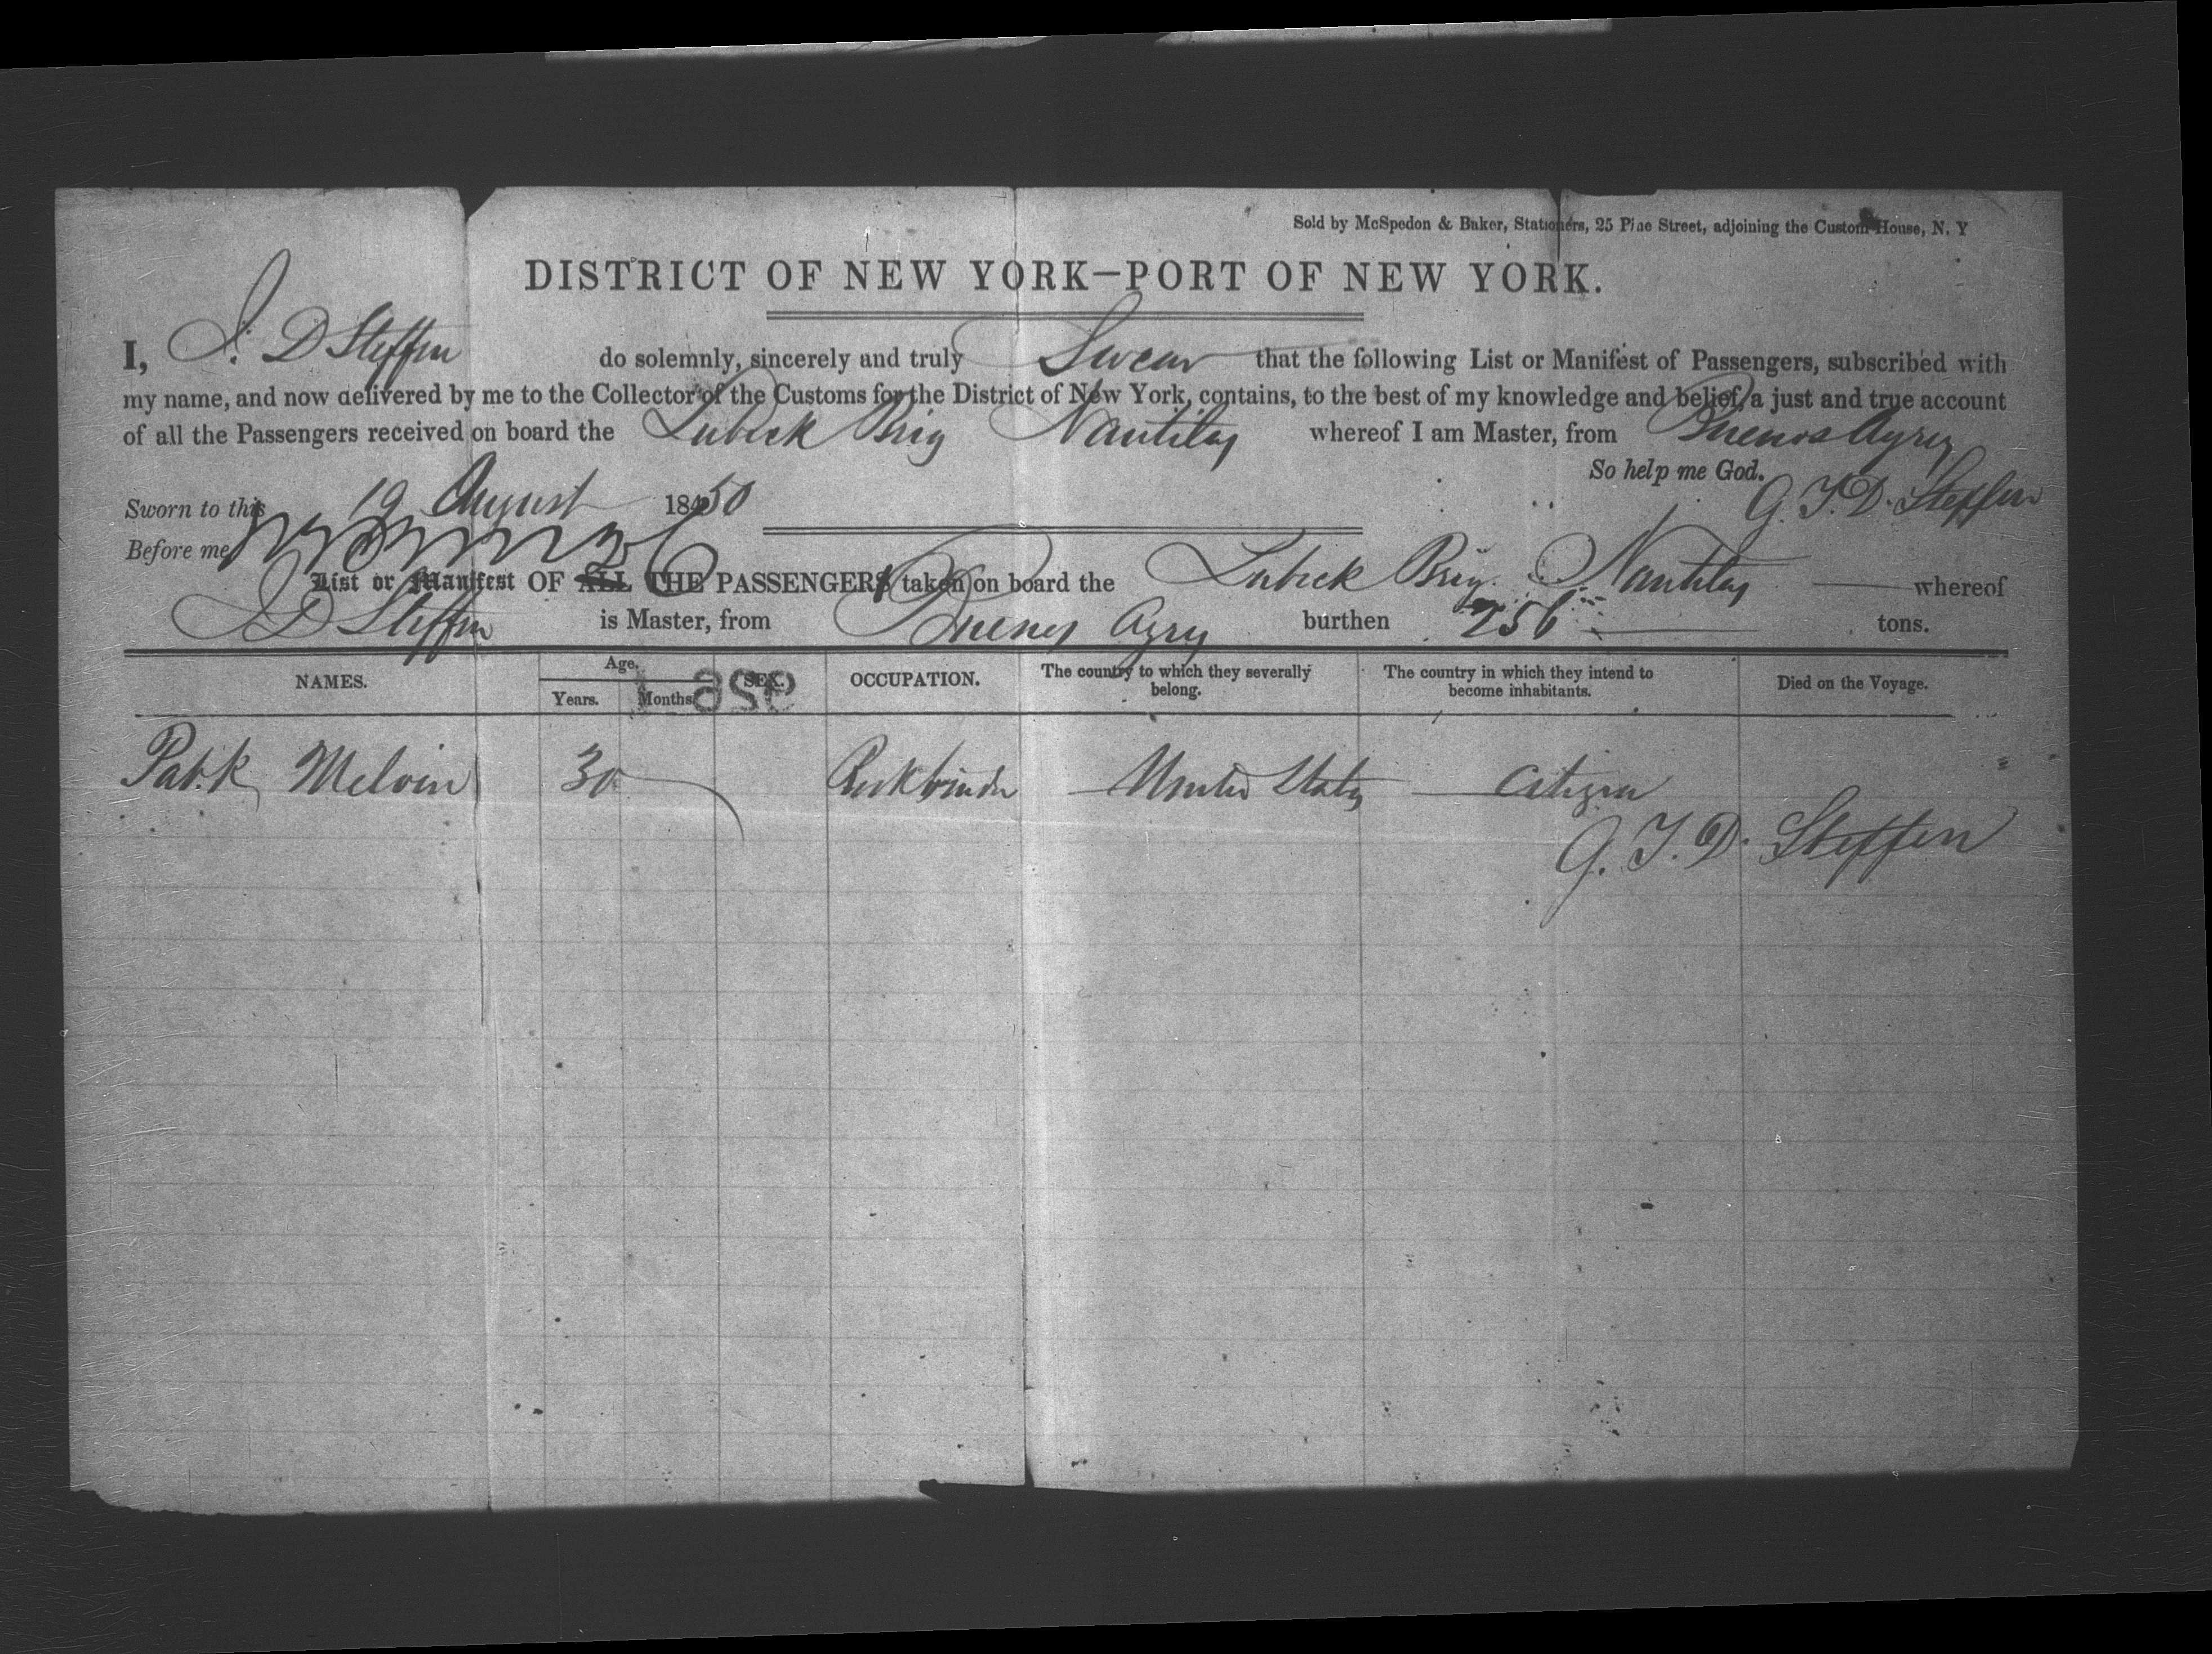 Sold by McSpedon & Baker, Stationers, 25 Pine Street, adjoining the Custom House, N. Y
DISTRICT OF NEW YORK—PORT OF NEW YORK.
I, J. D Steffen do solemnly, sincerely and truly Swear that the following List or Manifest of Passengers, subscribed with
my name, and now delivered by me to the Collector of the Customs for the District of New York, contains, to the best of my knowledge and belief, a just and true account
of all the Passengers received on board the Lubeck Brig Nautilus whereof I am Master, from Buenos Ayres
So help me God.
Sworn to this 19 August 1850 G. J. D. Steffen
Before me
List or Manifest OF ALL THE PASSENGERS taken on board the Lubeck Brig Nautilus whereof
J D Steffen is Master, from Buenos Ayres burthen 256 tons.
NAMES. Age. Years. Months. SEX. OCCUPATION. The country to which they severally belong. The country in which they intend to become inhabitants. Died on the Voyage.
958
Pat.k Melvin 30 United States Citizen
G. J. D. Steffen